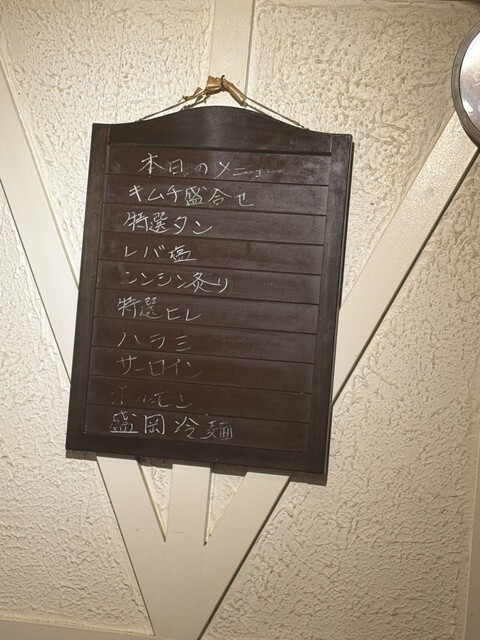 本日のメニュー
キムチ盛合せ
特選タン
レバ塩
シンシン炙り
特選ヒレ
ハラミ
サーロイン
ホルモン
盛岡冷麺